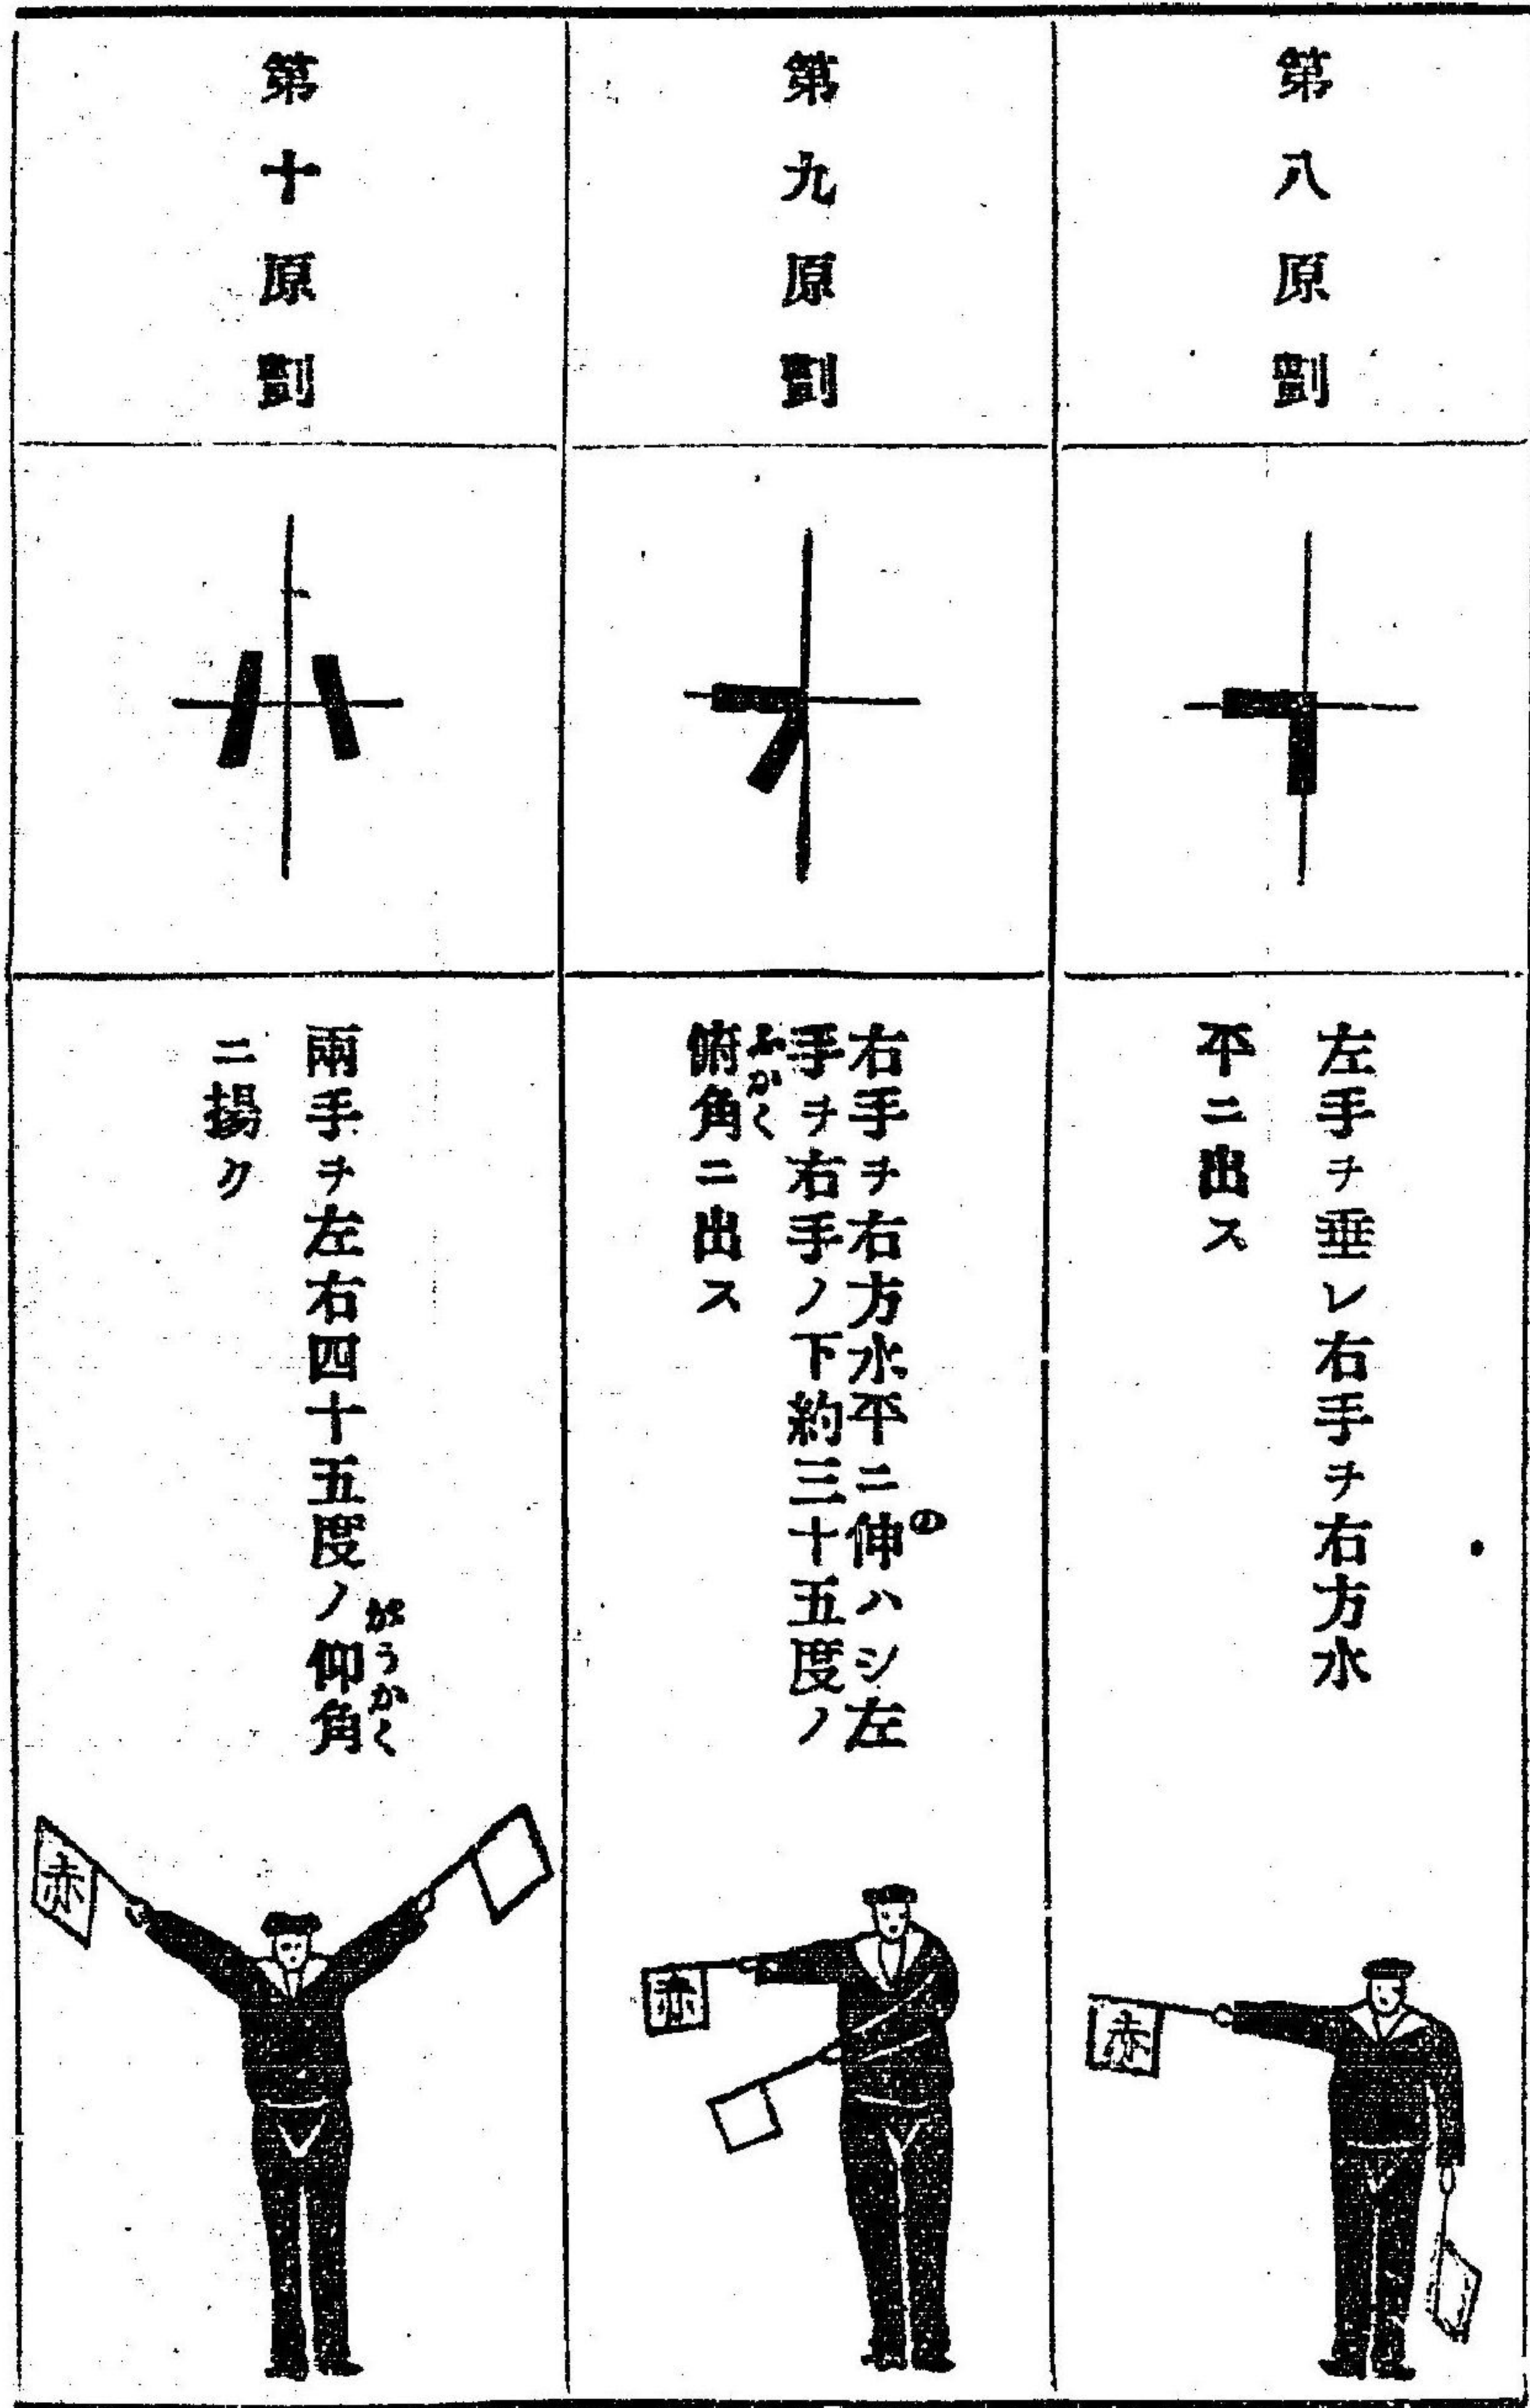 第八原劃
左手ヲ垂レ右手ヲ右方水
平ニ出ス
赤
第九原劃
右手ヲ右方水平ニ伸ハシ左
の
手ヲ右手ノ下約三十五度ノ
俯角ニ出ス
ふかく
赤
第十原劃
兩手ヲ左右四十五度ノ仰角
がうかく
ニ揚ク
赤